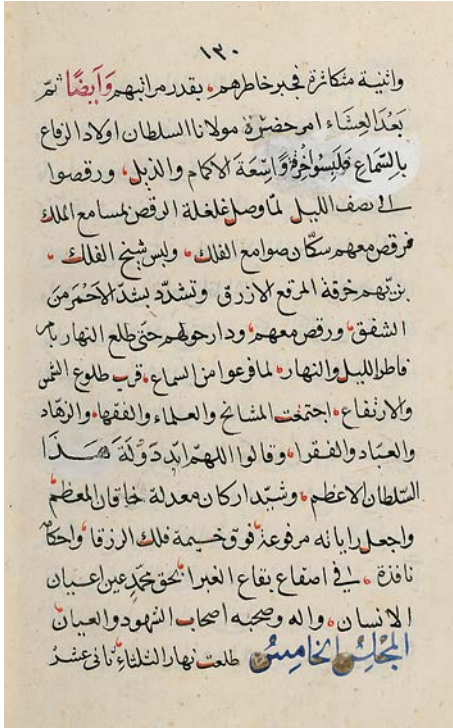 ١٣٠
واثنية متكاثرة فجبر خاطرهم، بقدر مراتبهم وَاَيضًا ثمّ
بَعْدَ العِشَاء امر حضرة مولانا السلطان اولاد الرفاع
بالسَّمَاعِ فلبسوا خرقة واسِّعَةَ الاكمام والذيل، ورقصوا
الى نصف الليل لمّا وصل غلغلة الرقص بمسامع الملك
فرقص معهم سكّان صوامع الفلك، ولبس شيخ الفلك،
بزيّهم خرقة المرقع الازرق وتشدّد بشدّ الاحْمَر مَنَ
الشفق، ورقص معهم، ودار حولهم حتّى طلع النهار بامر
فاطر الليل والنهار، لما فرغوا من السماع، قرب طلوع الشمس
والارتفاع، اجتمعَت المشائخ والعلماء والفقهاء، والزهّاد
والعبّاد والفقراء، وقالوا اللهمّ ابّد دَوْلَةَ هَذَا
السّلطان الاعظم، وشيّد اركان معدلة خاقان المعظم،
واجعل راياته مرفوعة، فوق خيمة فلك الزرقا، واحكامه
نافذة، في اصقاع بقاع الغبرا بحق محمّد عين اعيان
الانسان، واله وصحبه اصحاب الشهود والعيان
المجْلِسُ الخامِسُ طلعت نهار الثلثاء ثانى عشر